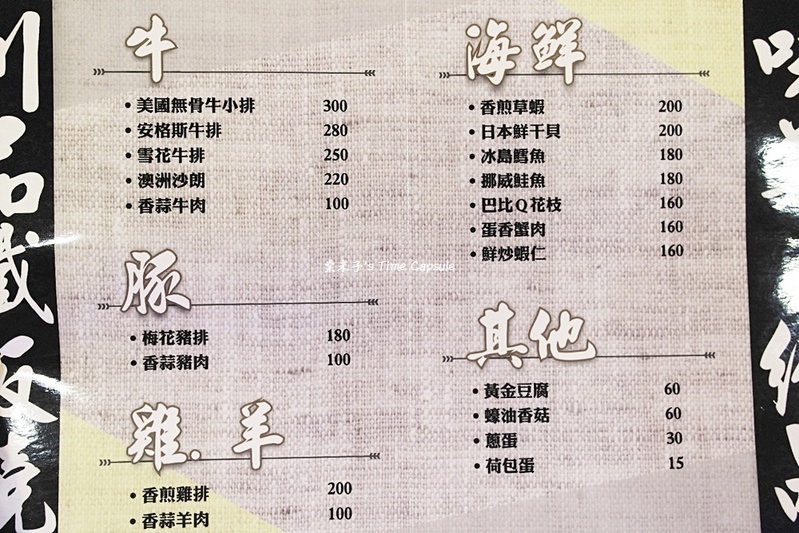 牛
• 美國無骨牛小排 300
• 安格斯牛排 280
• 雪花牛排 250
• 澳洲沙朗 220
• 香蒜牛肉 100
豚
• 梅花豬排 180
• 香蒜豬肉 100
雞.羊
• 香煎雞排 200
• 香蒜羊肉 100
海鮮
• 香煎草蝦 200
• 日本鮮干貝 200
• 冰島鱈魚 180
• 挪威鮭魚 180
• 巴比Q花枝 160
• 蛋香蟹肉 160
• 鮮炒蝦仁 160
其他
• 黃金豆腐 60
• 蠔油香菇 60
• 蔥蛋 30
• 荷包蛋 15
's Time Capsule